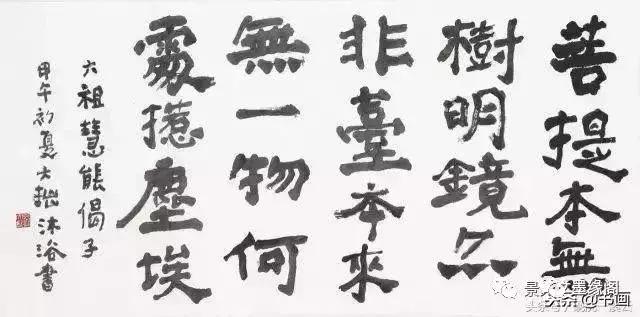 菩提本無
樹明鏡亦
非臺本來
無一物何
處塵埃
六祖慧能偈子
甲午初夏大拙沐浴書
墨缘阁
头条@书画